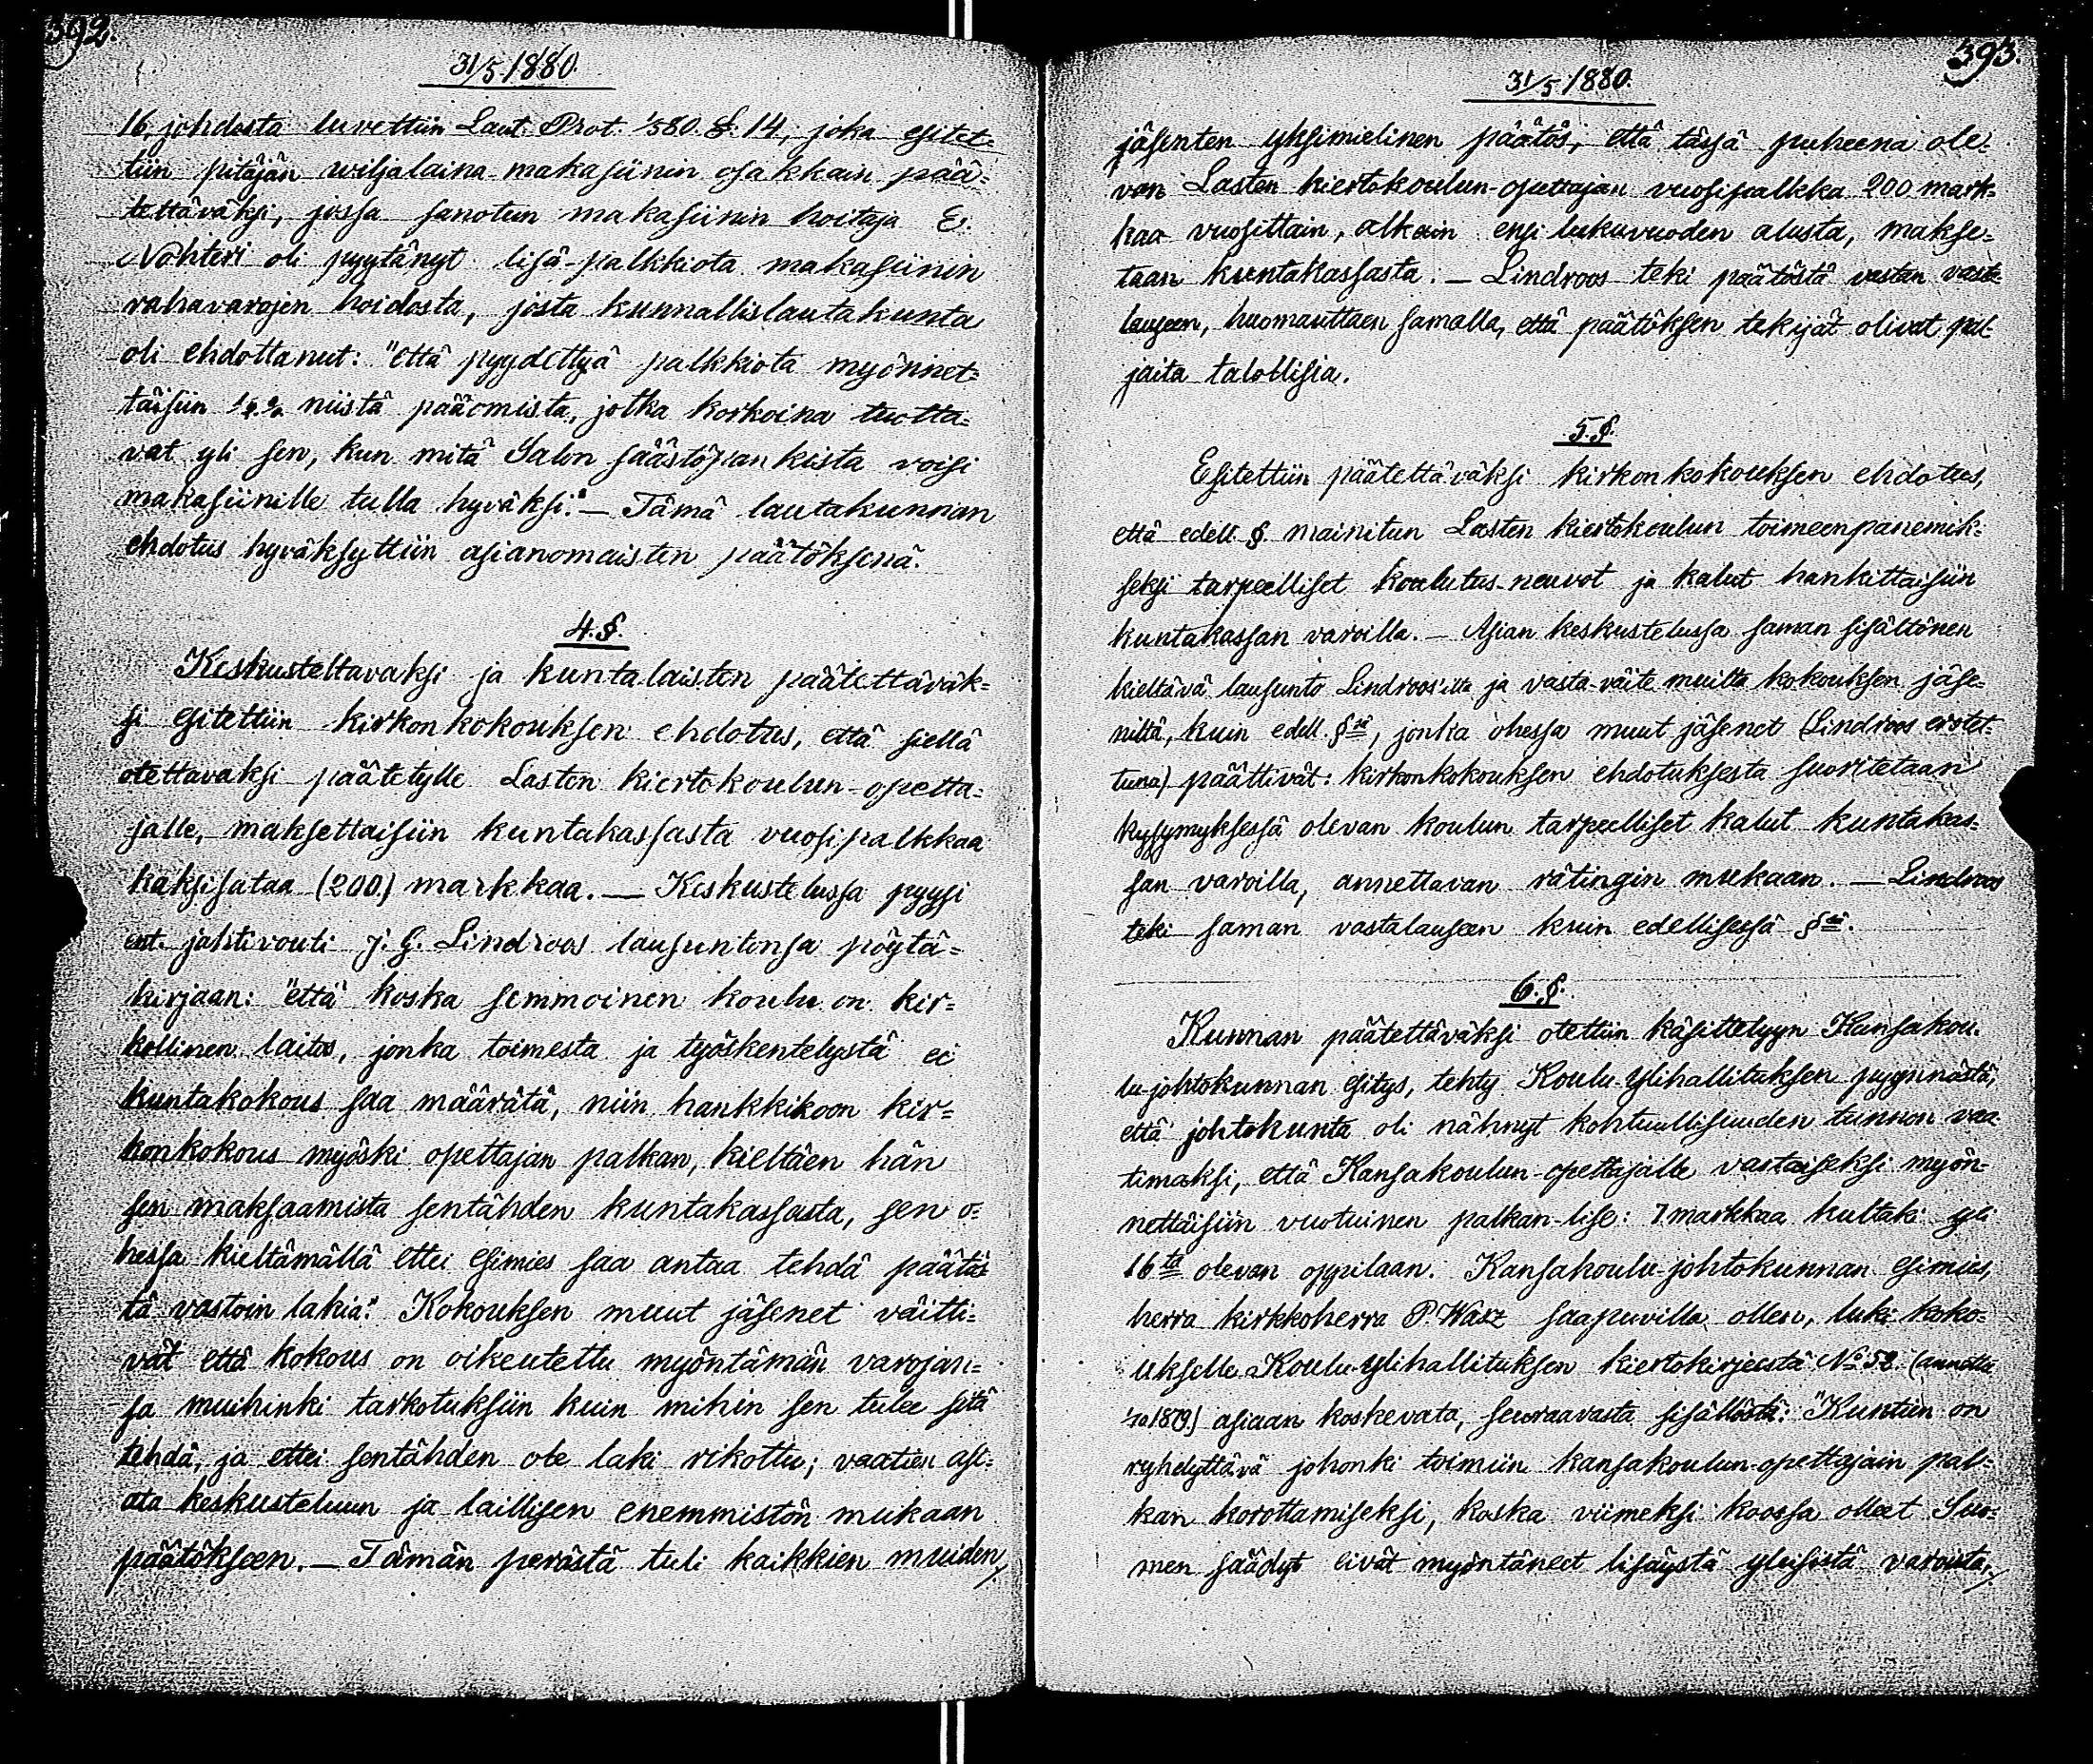 392.
31/5 1880.
16, johdosta luvettiin Laut. Prot. 1/5 80. §. 14, joka esitet-
tiin pitäjän wiljalaina-makasiinin osakkain pää-
tettäväksi, jossa sanotun makasiinin hoitaja E.
Nohteri oli pyytänyt lisä-palkkiota makasiinin
rahavarojen hoidosta, josta kunnallislautakunta
oli ehdottanut: "että pyydettyä palkkiota myönnet-
täisiin niistä pääomista, jotka korkoina tuotta-
vat yli sen, kun mitä Salon säästöpankista voisi
makasiinille tulla hyväksi." — Tämä lautakunnan
ehdotus hyväksyttiin asianomaisten päätöksenä.
4. §.
Keskusteltavaksi ja kuntalaisten päätettäväk-
si esitettiin kirkonkokouksen ehdotus, että siellä
otettavaksi päätetylle Lasten kiertokoulun-opetta-
jalle, maksettaisiin kuntakassasta vuosipalkkaa
kaksisataa (200.) markkaa. — Keskustelussa pyysi
ent. jahtivouti J. G. Lindroos lausuntonsa pöytä-
kirjaan: "että koska semmoinen koulu on kir-
kollinen laitos, jonka toimesta ja työskentelystä ei
kuntakokous saa määrätä, niin hankkikoon kir-
konkokous myöski opettajan palkan, kieltäen hän
sen maksaamista sentähden kuntakassasta, sen o-
hessa kieltämällä ettei esimies saa antaa tehdä päätös
tä vastoin lakia." Kokouksen muut jäsenet väitti-
vät että kokous on oikeutettu myöntämän varojan-
sa muihinki tarkotuksiin kuin mihin sen tulee sitä
tehdä, ja ettei sentähden ole laki rikottu; vaatien asi-
ata keskusteluun ja laillisen enemmistön mukaan
päätökseen. — Tämän perästä tuli kaikkien muiden
393.
31/5 1880.
jäsenten yksimielinen päätös, että tässä puheena ole-
van Lasten kiertokoulun-opettajan vuosipalkka 200 mark-
kaa vuosittain, alkain ensi lukuvuoden alusta, makse-
taan kuntakassasta. — Lindroos teki päätöstä vastan vasta-
lauseen, huomauttaen samalla, että päätöksen tekijät olivat pal-
jaita talollisia.
5. §.
Esitettiin päätettäväksi kirkonkokouksen ehdotus,
että edell. §. mainitun Lasten kiertokoulun toimeenpanemik-
seksi tarpeelliset koulutus-neuvot ja kalut hankittaisiin
kuntakassan varoilla. — Asian keskustelussa saman sisältönen
kieltävä lausunto Lindroos'ilta ja vasta-väite muilta kokouksen jäse-
niltä, kuin edell. §sä, jonka ohessa muut jäsenet (Lindroos erotet-
tuna) päättivät: kirkonkokouksen ehdotuksesta suoritetaan
kysymyksessä olevan koulun tarpeelliset kalut kuntakas-
san varoilla, annettavan rätingin mukaan. — Lindroos
teki saman vastalauseen kuin edellisessä §sä.
6. §.
Kunnan päätettäväksi otettiin käsittelyyn Kansakou-
lu-johtokunnan esitys, tehty Koulu-Ylihallituksen pyynnöstä,
että johtokunta oli nähnyt kohtuullisuuden tunnon vaa-
timaksi, että Kansakoulun-opettajalle vastaiseksi myön-
nettäisiin vuotuinen palkan-lise: 7 markkaa kultaki yli
16ta olevan oppilaan. Kansakoulu-johtokunnan esimies,
herra kirkkoherra P. Wasz saapuvilla ollen, luki koko-
ukselle Koulu-Ylihallituksen kiertokirjeestä No 52. (annettu
1/10 1879.) asiaan koskevata, seuraavasta sisällöstä: "Kuntien on
ryhdyttävä johonki toimiin kansakoulun-opettajain pal-
kan korottamiseksi, koska viimeksi koossa olleet Suo-
men säädyt eivät myöntäneet lisäystä yleisistä varoista,